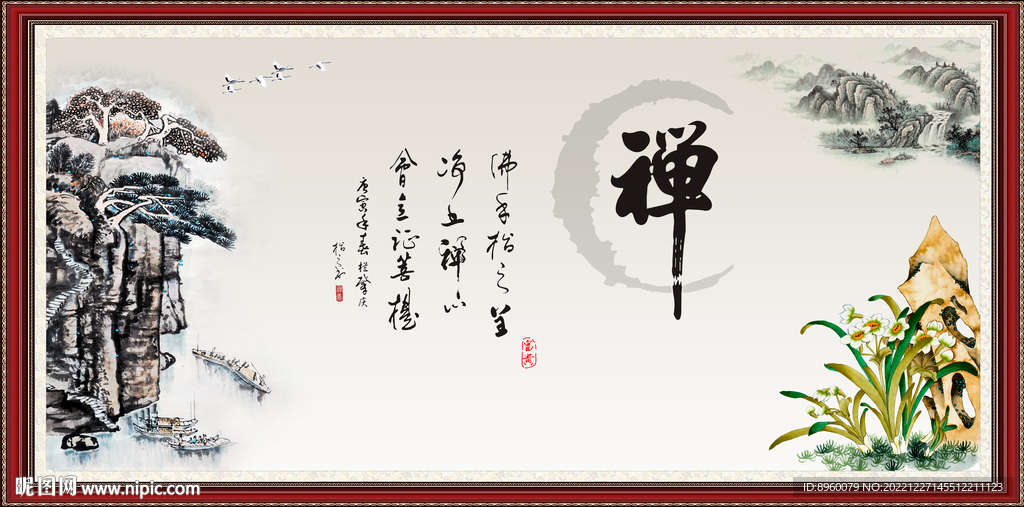 禅
佛手指之
净土禪心
立证菩提
庚寅年春於肇庆
昵图网 www.nipic.com
ID:8960079 NO:20221227145512211123